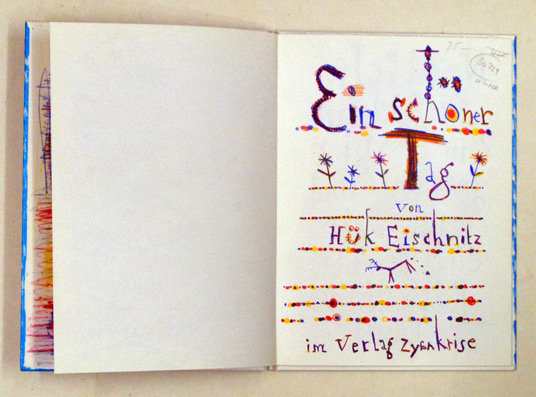 Ein schöner
Tag
von
Hük Eischnitz
im Verlag zyankrise